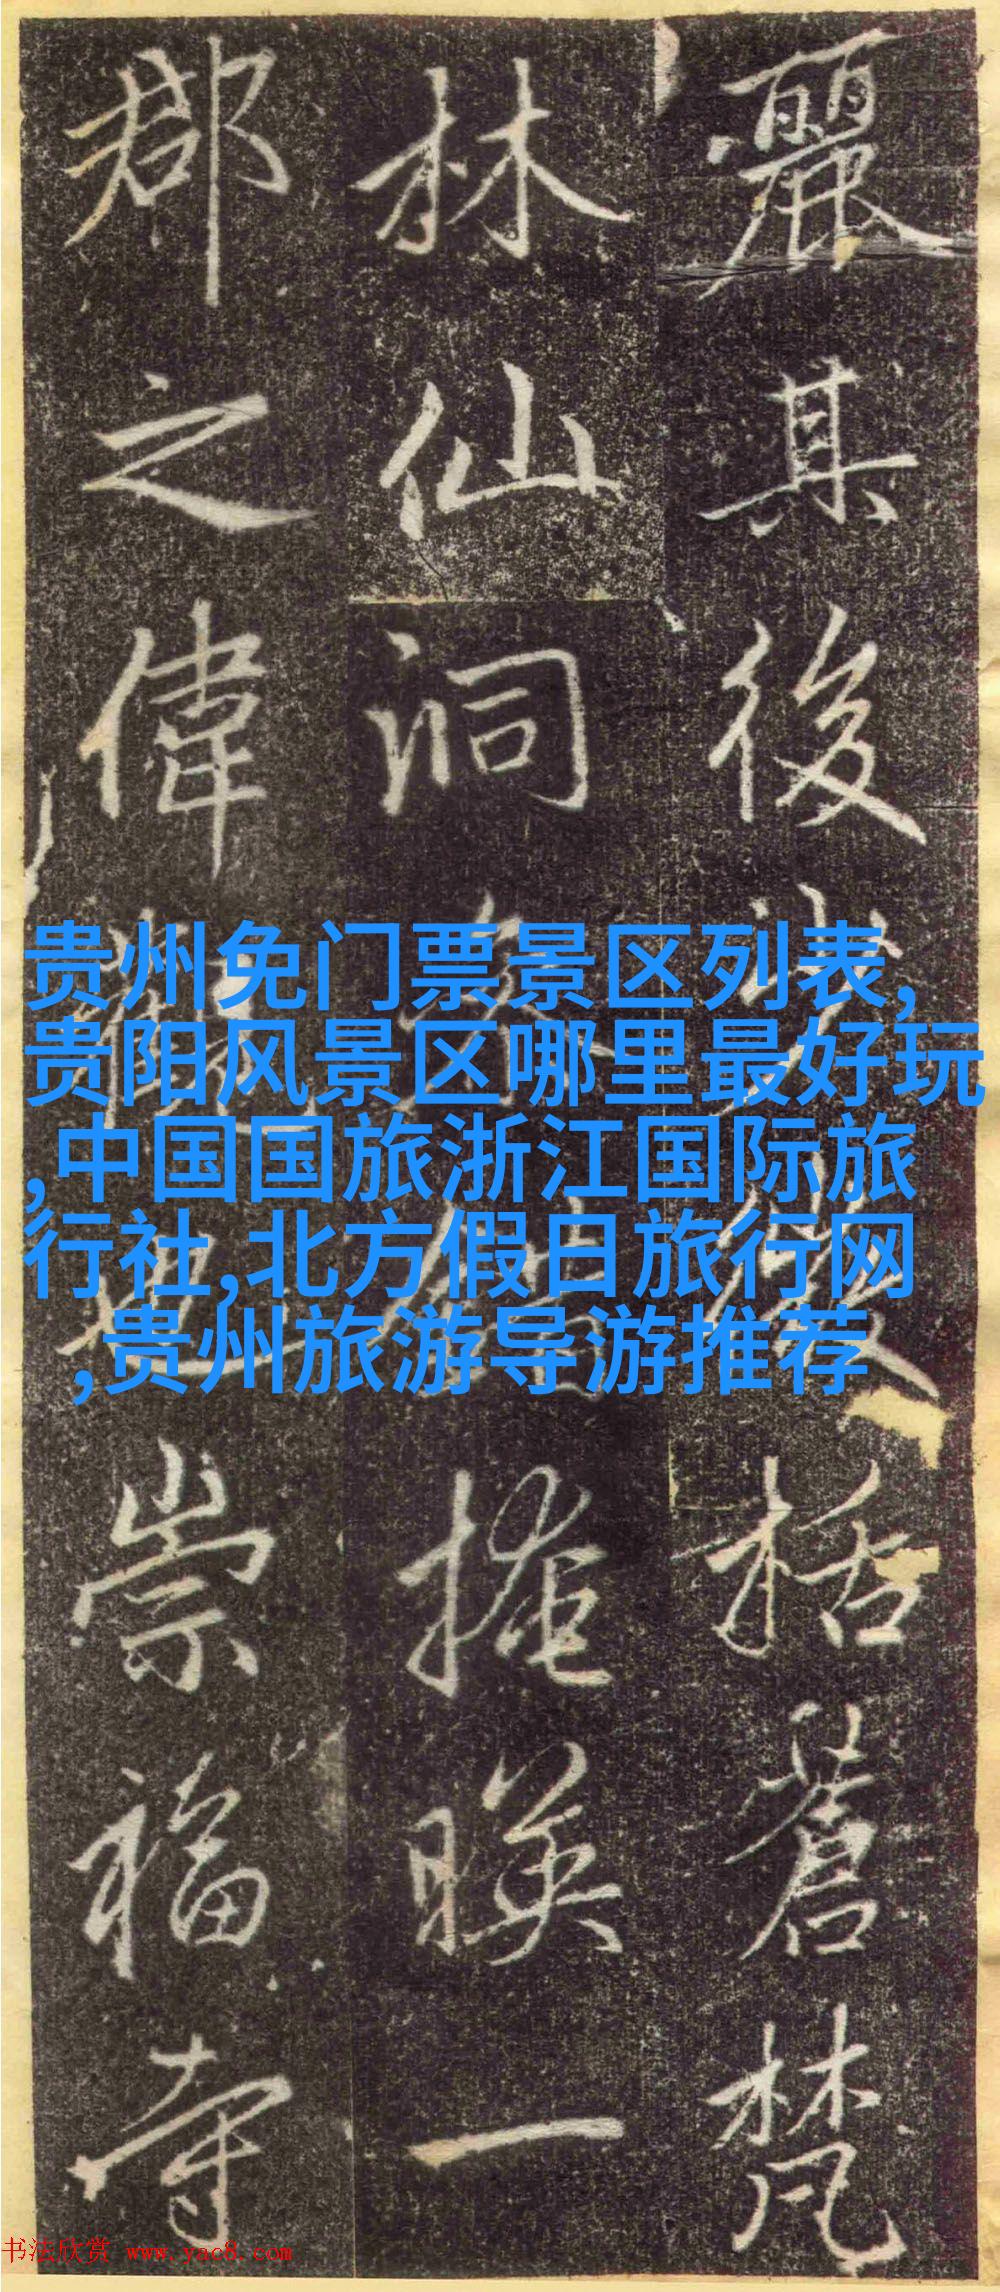 麗其後栝蒼梵
林仙洞掩暎一
郡之偉崇福寺
贵州免门票景区列表,
贵阳风景区哪里最好玩
,中国国旅浙江国际旅
行社,北方假日旅行网
,贵州旅游导游推荐
书法欣赏 www.yac8.com